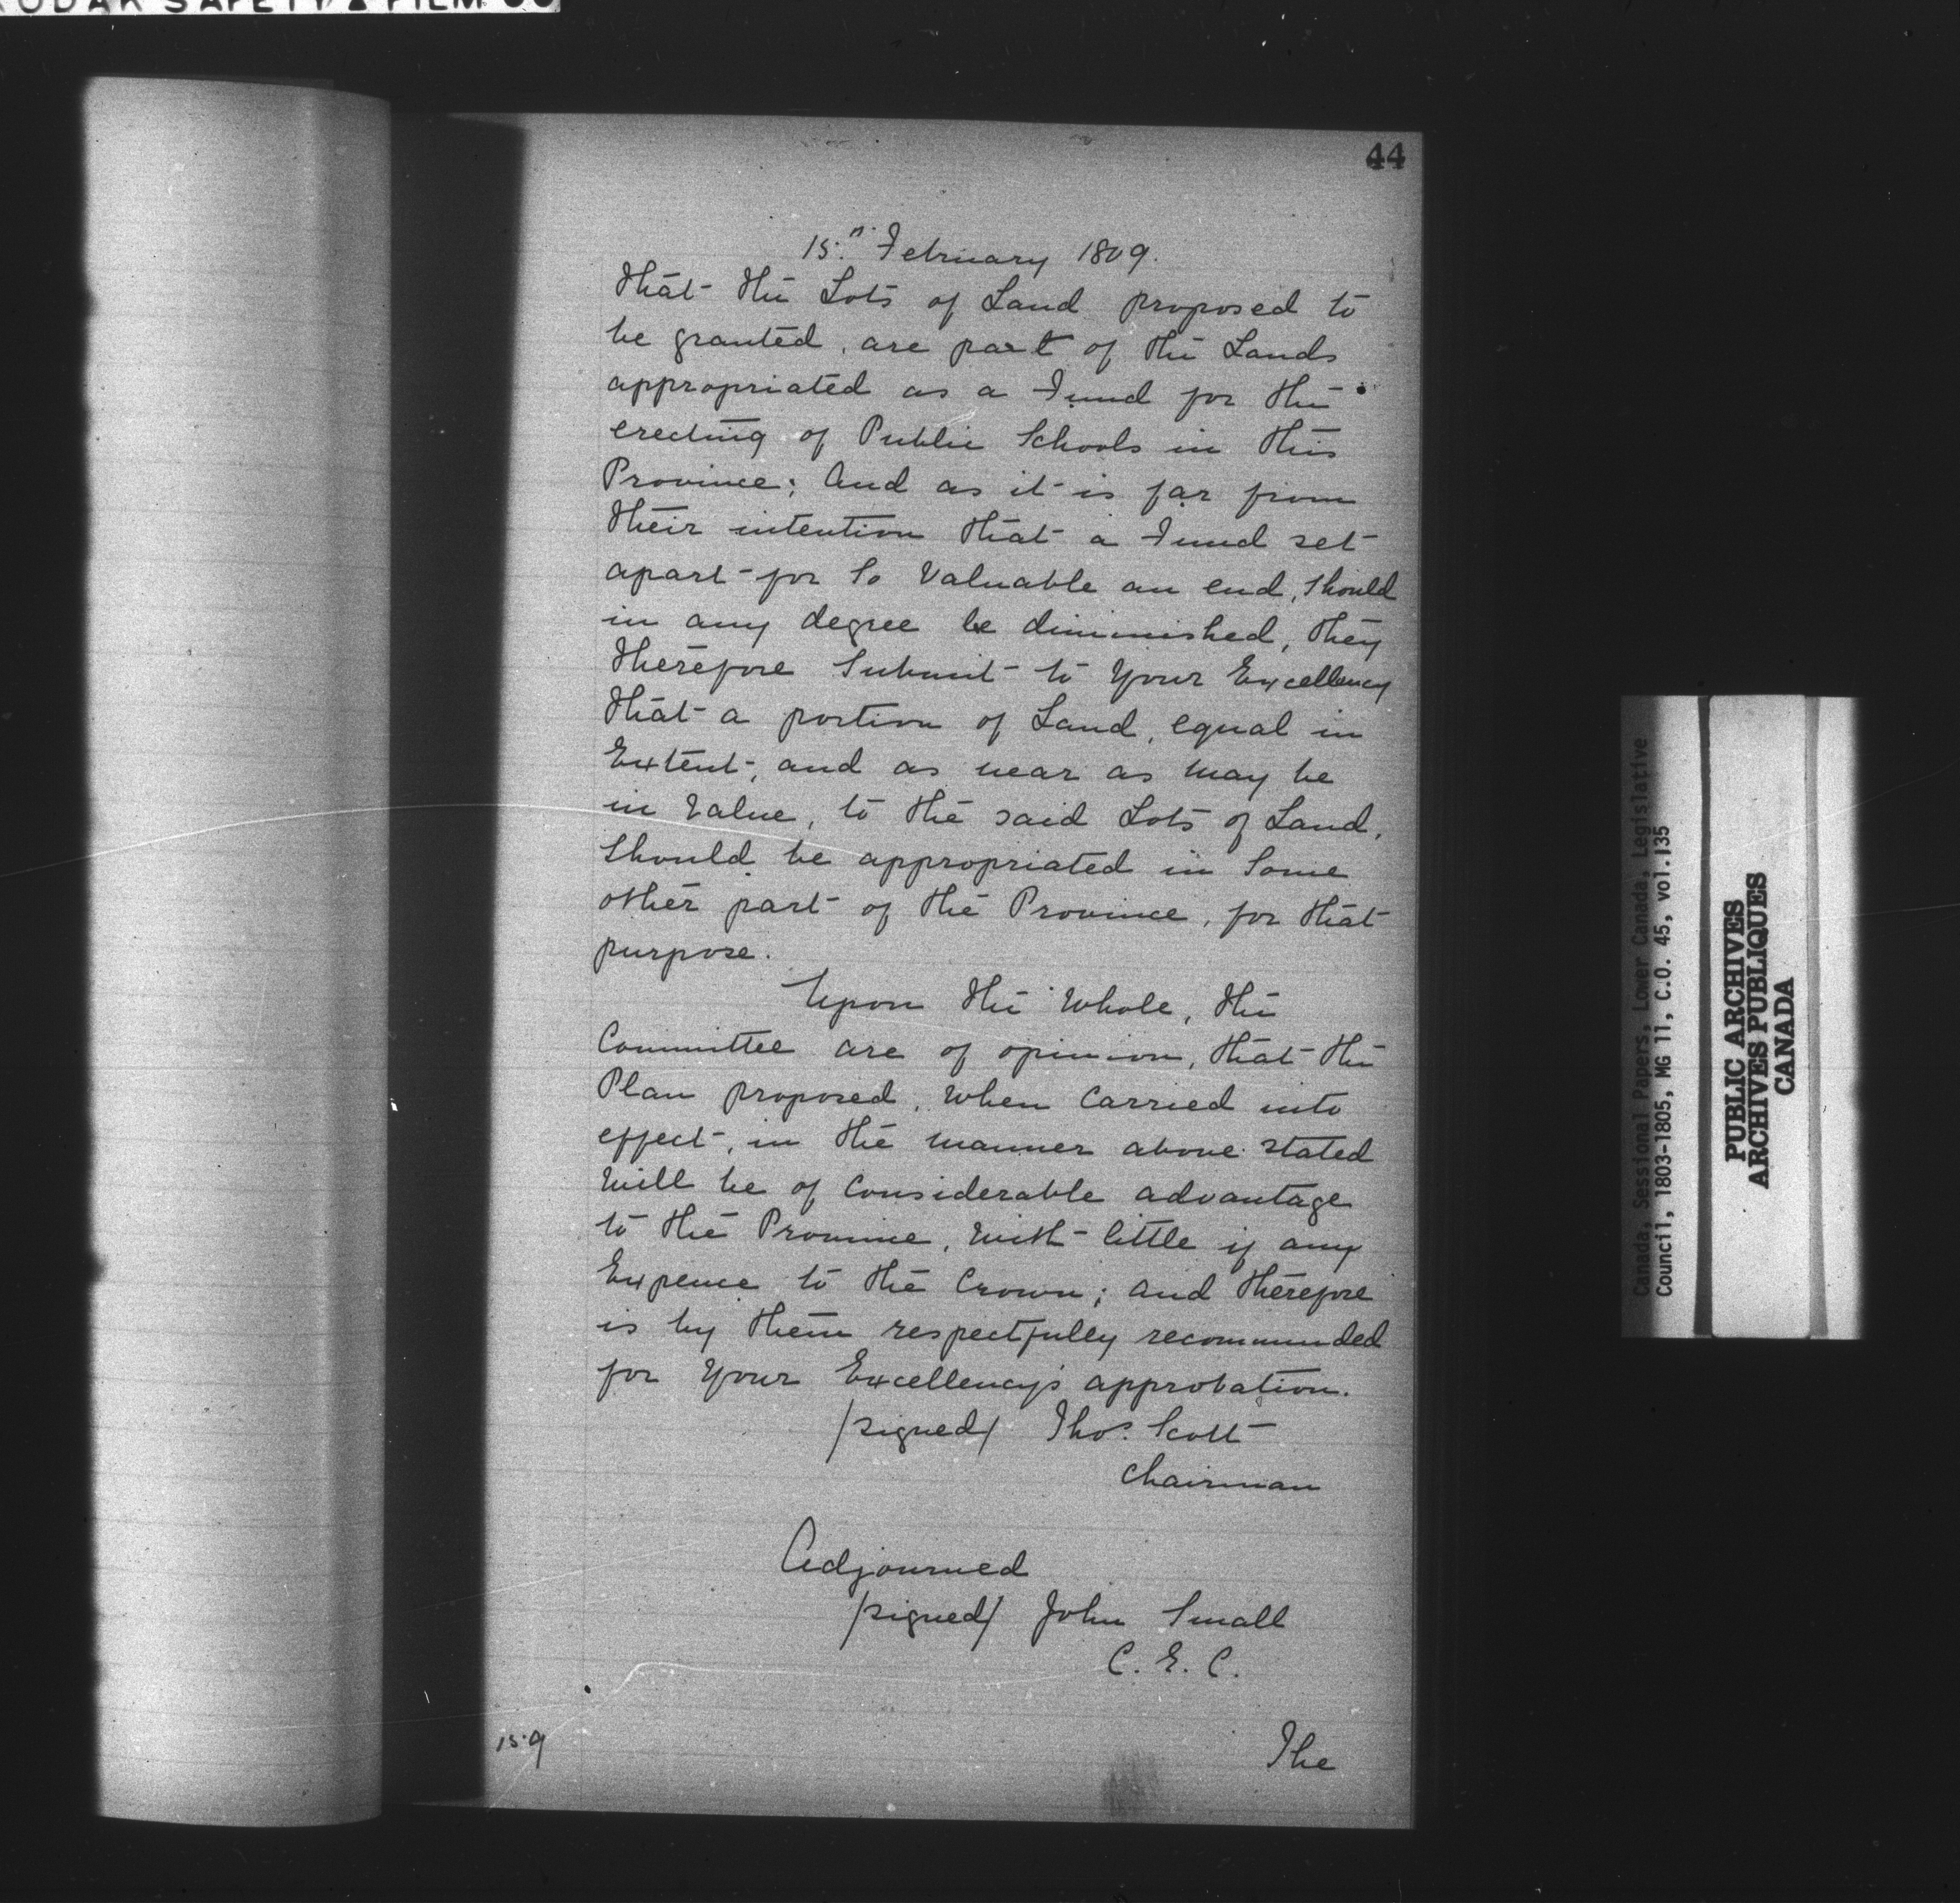 44
15th February 1809.
that the Lots of Land proposed to
be granted, are part of the Lands
appropriated as a Fund for the
erecting of Public Schools in this
Province; And as it is far from
their intention that a Fund set
apart for So Valuable an end, Should
in any degree be diminished, they
therefore Submit to Your Excellency
that a portion of Land, equal in
Extent, and as near as may be
in Value, to the said Lots of Land,
Should be appropriated in Some
other part of the Province, for that
purpose.
Upon the Whole, the
Committee are of opinion, that the
Plan proposed, When Carried into
effect, in the manner above stated
Will be of Considerable advantage
to the Province, With little if any
Expence to the Crown; and therefore
is by them respectfully recommended
for Your Excellency's approbation.
/signed/ Thos. Scott
Chairman
Adjourned
/signed/ John Small
C. E. C.
The
Canada, Sessional Papers, Lower Canada, Legislative
Council, 1803-1805, MG 11, C.O. 45, vol.135
PUBLIC ARCHIVES
ARCHIVES PUBLIQUES
CANADA